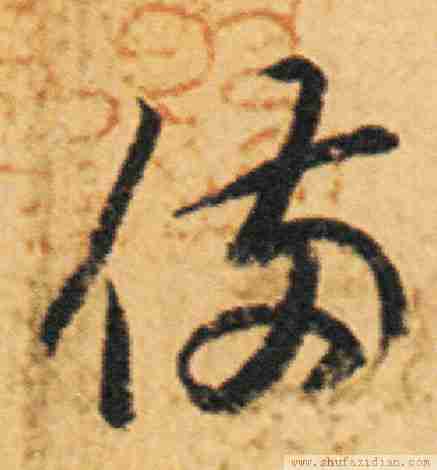 備
www.shufazidian.com